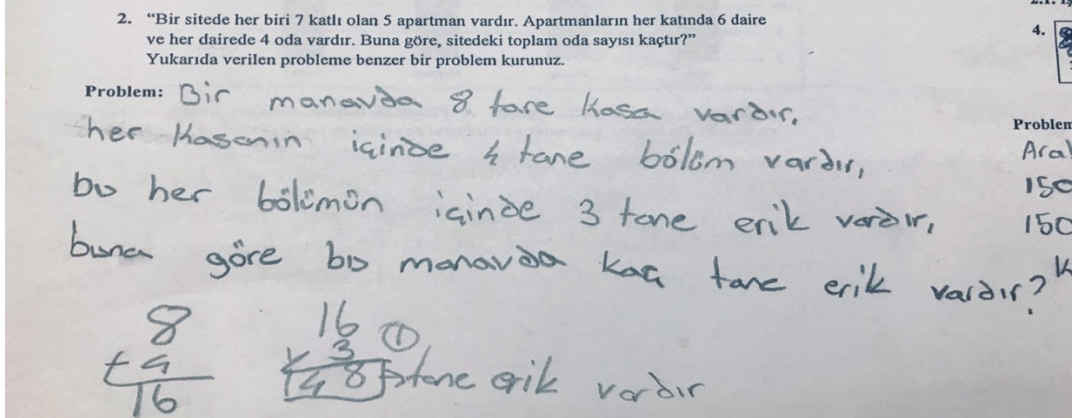 2. "Bir sitede her biri 7 katlı olan 5 apartman vardır. Apartmanların her katında 6 daire
ve her dairede 4 oda vardır. Buna göre, sitedeki toplam oda sayısı kaçtır?"
Yukarıda verilen probleme benzer bir problem kurunuz.
Problem: Bir manavda 8 tane kasa vardır,
her kasanın içinde 4 tane bölüm vardır,
bu her bölümün içinde 3 tane erik vardır,
buna göre bu manavda kaç tane erik vardır?
8
+4
16
16 1
x 3
48 tane erik vardır
4.
Problem
Aral
150
150
k